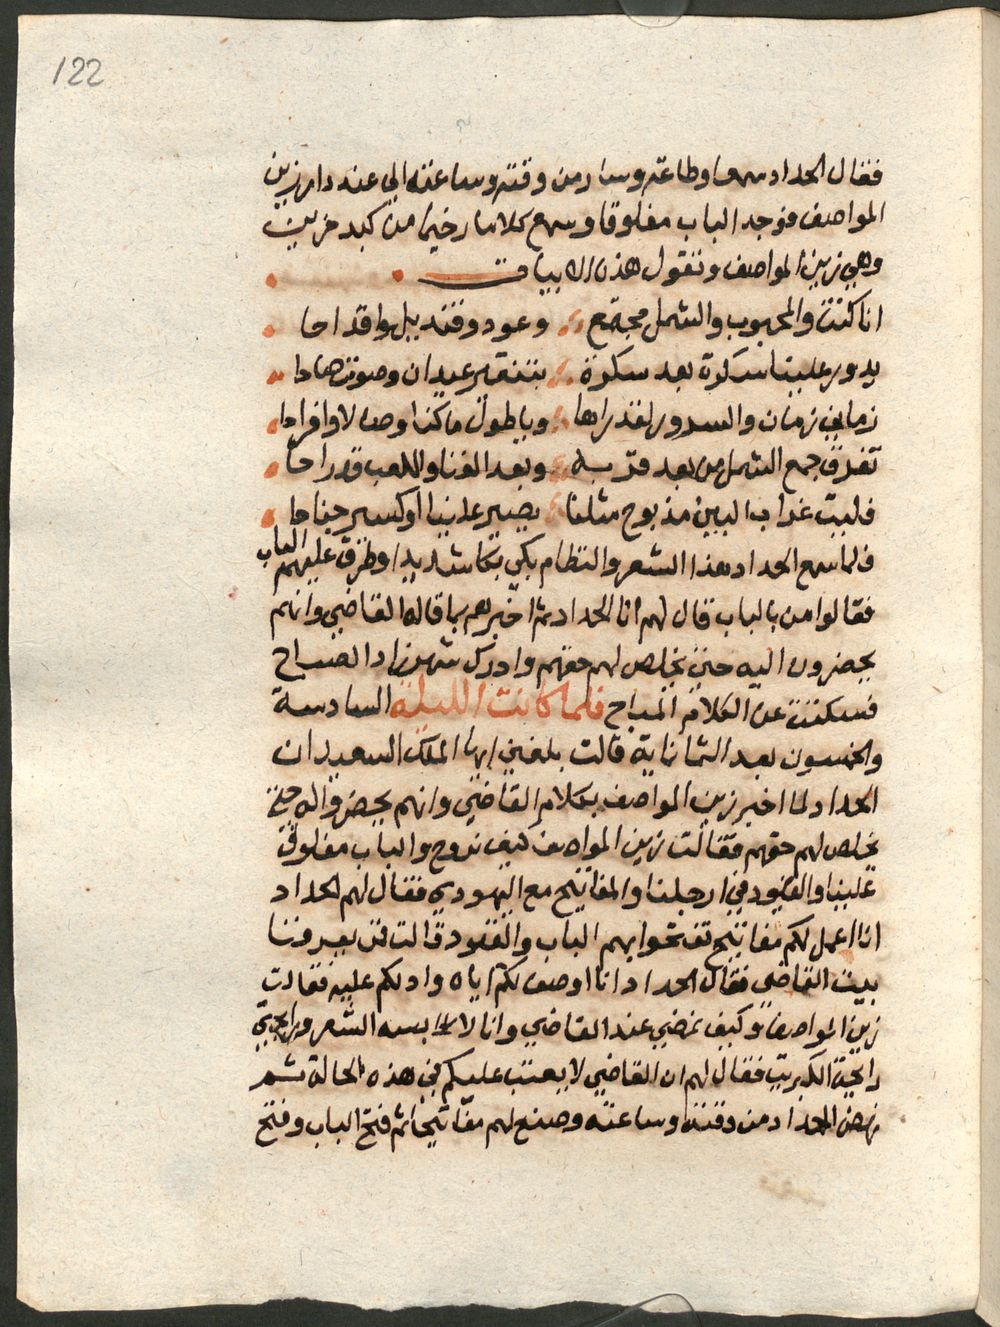 122
فقال الحداد سمعا وطاعة وسار من وقته وساعته الي عند دار زين
المواصف فوجد الباب مغلوقا وسمع كلاما رخيما من كبد حزين
وهي زين المواصف وتقول هذه الابيات
انا كنت والمحبوب والشمل مجتمع وعود وقنديل واقداحا
يدور علينا سكرة بعد سكرة بتنقير عيدان وصوت
زماني زمان والسرور وياطول ما كنا وصالا وافراحا
تفرق جمع الشمل من بعد قربه وبعد الغنا واللعب قد راحا
فليت غراب البين مذبوح مثلنا يصير علينا اوكسير جناحا
فلما سمع الحداد هذا الشعر والنظام بكي بكا شديدا وطرق عليهم الباب
فقالوا من بالباب قال لهم انا الحداد ثم اخبرهم بما قاله القاضي وانهم
يحضرون اليه حتي يخلص لهم حقهم وادرك شهرزاد الصباح
فسكتت عن الكلام المباح فلما كانت الليلة السادسة
والخمسون بعد الثمانماية قالت بلغني ايها الملك السعيد ان
الحداد لما اخبر زين المواصف بكلام القاضي وانهم يحضروا اليه حتي
يخلص لهم حقهم فقالت زين المواصف كيف نروح والباب مغلوق
علينا والقيود في ارجلنا والمفاتيح مع اليهودي فقال لهم الحداد
انا اعمل لكم مفاتيح تفتحوا بهم الباب والقيود قالت فمن يعرفنا
بيت القاضي فقال الحداد انا اوصف لكم اياه وادلكم عليه فقالت
زين المواصف وكيف نمضي عند القاضي وانا لابسه الشعر ورايحتي
رايحة الكبريت فقال لهم ان القاضي لا يعتب عليكم في هذه الحالة ثم
نهض الحداد من وقته وساعته وصنع لهم مفاتيحا ثم فتح الباب وفتح